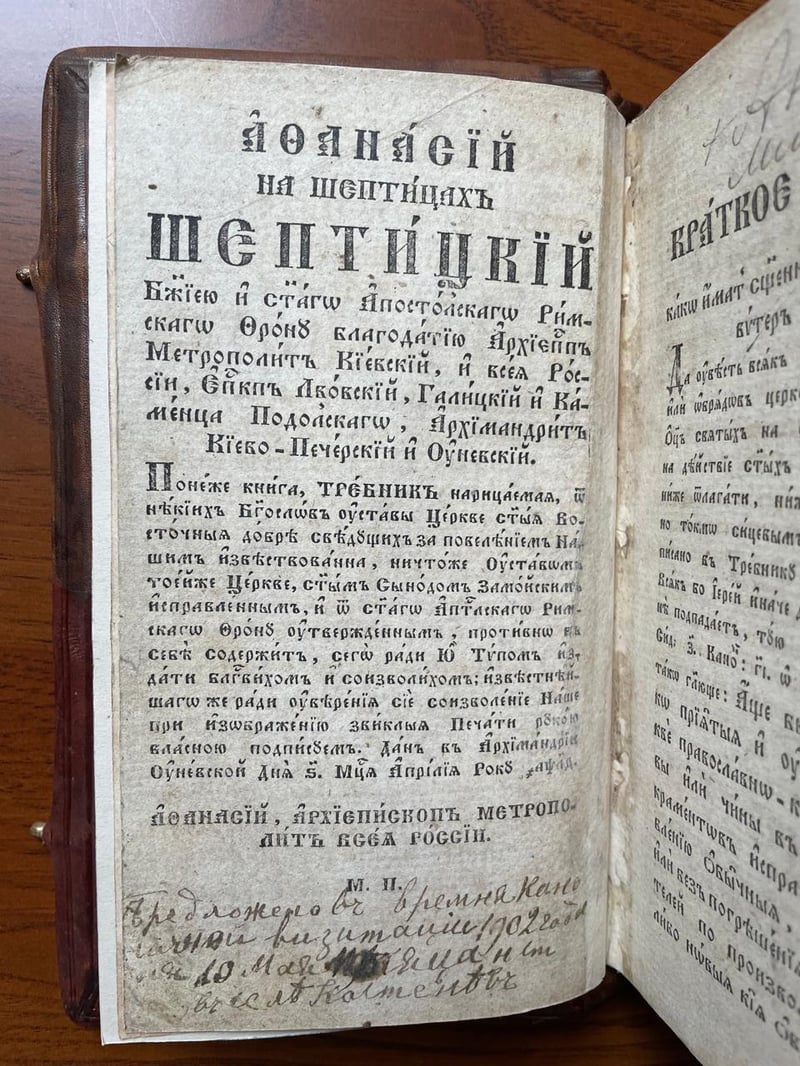 А҆ѳана́сїй
на Шепти́цахъ
Шепти́цкїй
Бж҃їею и҆ ст҃а́гѡ А҆посто́лскагѡ Ри́м-
скагѡ Ѳро́нꙋ благода́тїю А҆рхїеп҃пъ
Метрополи́тъ Кі́евскїй, и҆ всея̀ Ро́с-
сїи, Е҆п҃кпъ Лво́вскїй, Га́лицкїй и҆ Ка-
ме́нца Подо́лскагѡ, А҆рхїмандри́тъ
Кїево-Пече́рскїй и҆ Оу҆невскїй.
Поне́же книга, ТРЕ́БНИКЪ нарица́емая, ѿ
нѣ́кїихъ Бг҃осло́въ оу҆ста́вы Це́ркве ст҃ы́я Во-
сто́чныя до́брѣ свѣ́дꙋщихъ за повелѣ́нїемъ На́-
шимъ и҆звѣ́ствованна, ничто́же Оу҆ста́вѡмъ
тое́йже Це́ркве, ст҃ы́мъ Сыно́домъ Замо́йскимъ
и҆спра́вленнымъ, и҆ ѿ ст҃а́гѡ А҆пт҃лскагѡ Рим-
скагѡ Ѳро́нꙋ оу҆твержде́ннымъ, проти́внѡ въ
себѣ̀ содержи́тъ, сегѡ̀ ра́ди Ю҆̀ Ту́помъ и҆з-
да́ти блг҃ви́хомъ и҆ соизво́лихомъ; и҆звѣ́стнѣй-
шагѡ же ра́ди оу҆вѣре́нїя сїѐ соизволе́нїе На́ше
при и҆зѡбраже́нїю зви́клыя Печа́ти рꙋко́ю
вла́сною подпи́сꙋемъ. Да́нъ в А҆рхїманд́рїи
Оу҆невской Дня̀ ѕ҃. Мц҃а А҆прі́лїя Ро́кꙋ ҂аѱл҃д.
А҆ѳана́сїй, А҆рхїепи́скопъ метропо-
ли́тъ всея̀ ро́ссїи.
М. П.
Предложено въ времня Кано
визитаціи 1902 года
10 Мая
въ селѣ
Кра́ткое
ка́кѡ и҆́мат
Да оу҆вѣ́сть всякъ
и҆лѝ ѡ҆бря́дѡвъ церк
Ѻц҃ъ святы́хъ на
на дѣ́йствїе ст҃ы́хъ
ни́же ѿлага́ти, ни́ж
но то́кмѡ сицевы́мъ
пи́сано въ Тре́бникꙋ
Вся́къ бо І҆ере́й и҆на́че
не подпада́етъ, то́ю
та́кѡ гл҃юще: А҆́ще
кѡ прїя́тыя и҆
кве правосла́внѡ-к
вы и҆лѝ чи́ны въ
краме́нтѡвъ и҆спра
вле́нїю Ѻ҆бы́чныя,
и҆лѝ без погрѣше́нїя
те́лей по произво
ли́во но́выя кїя̀